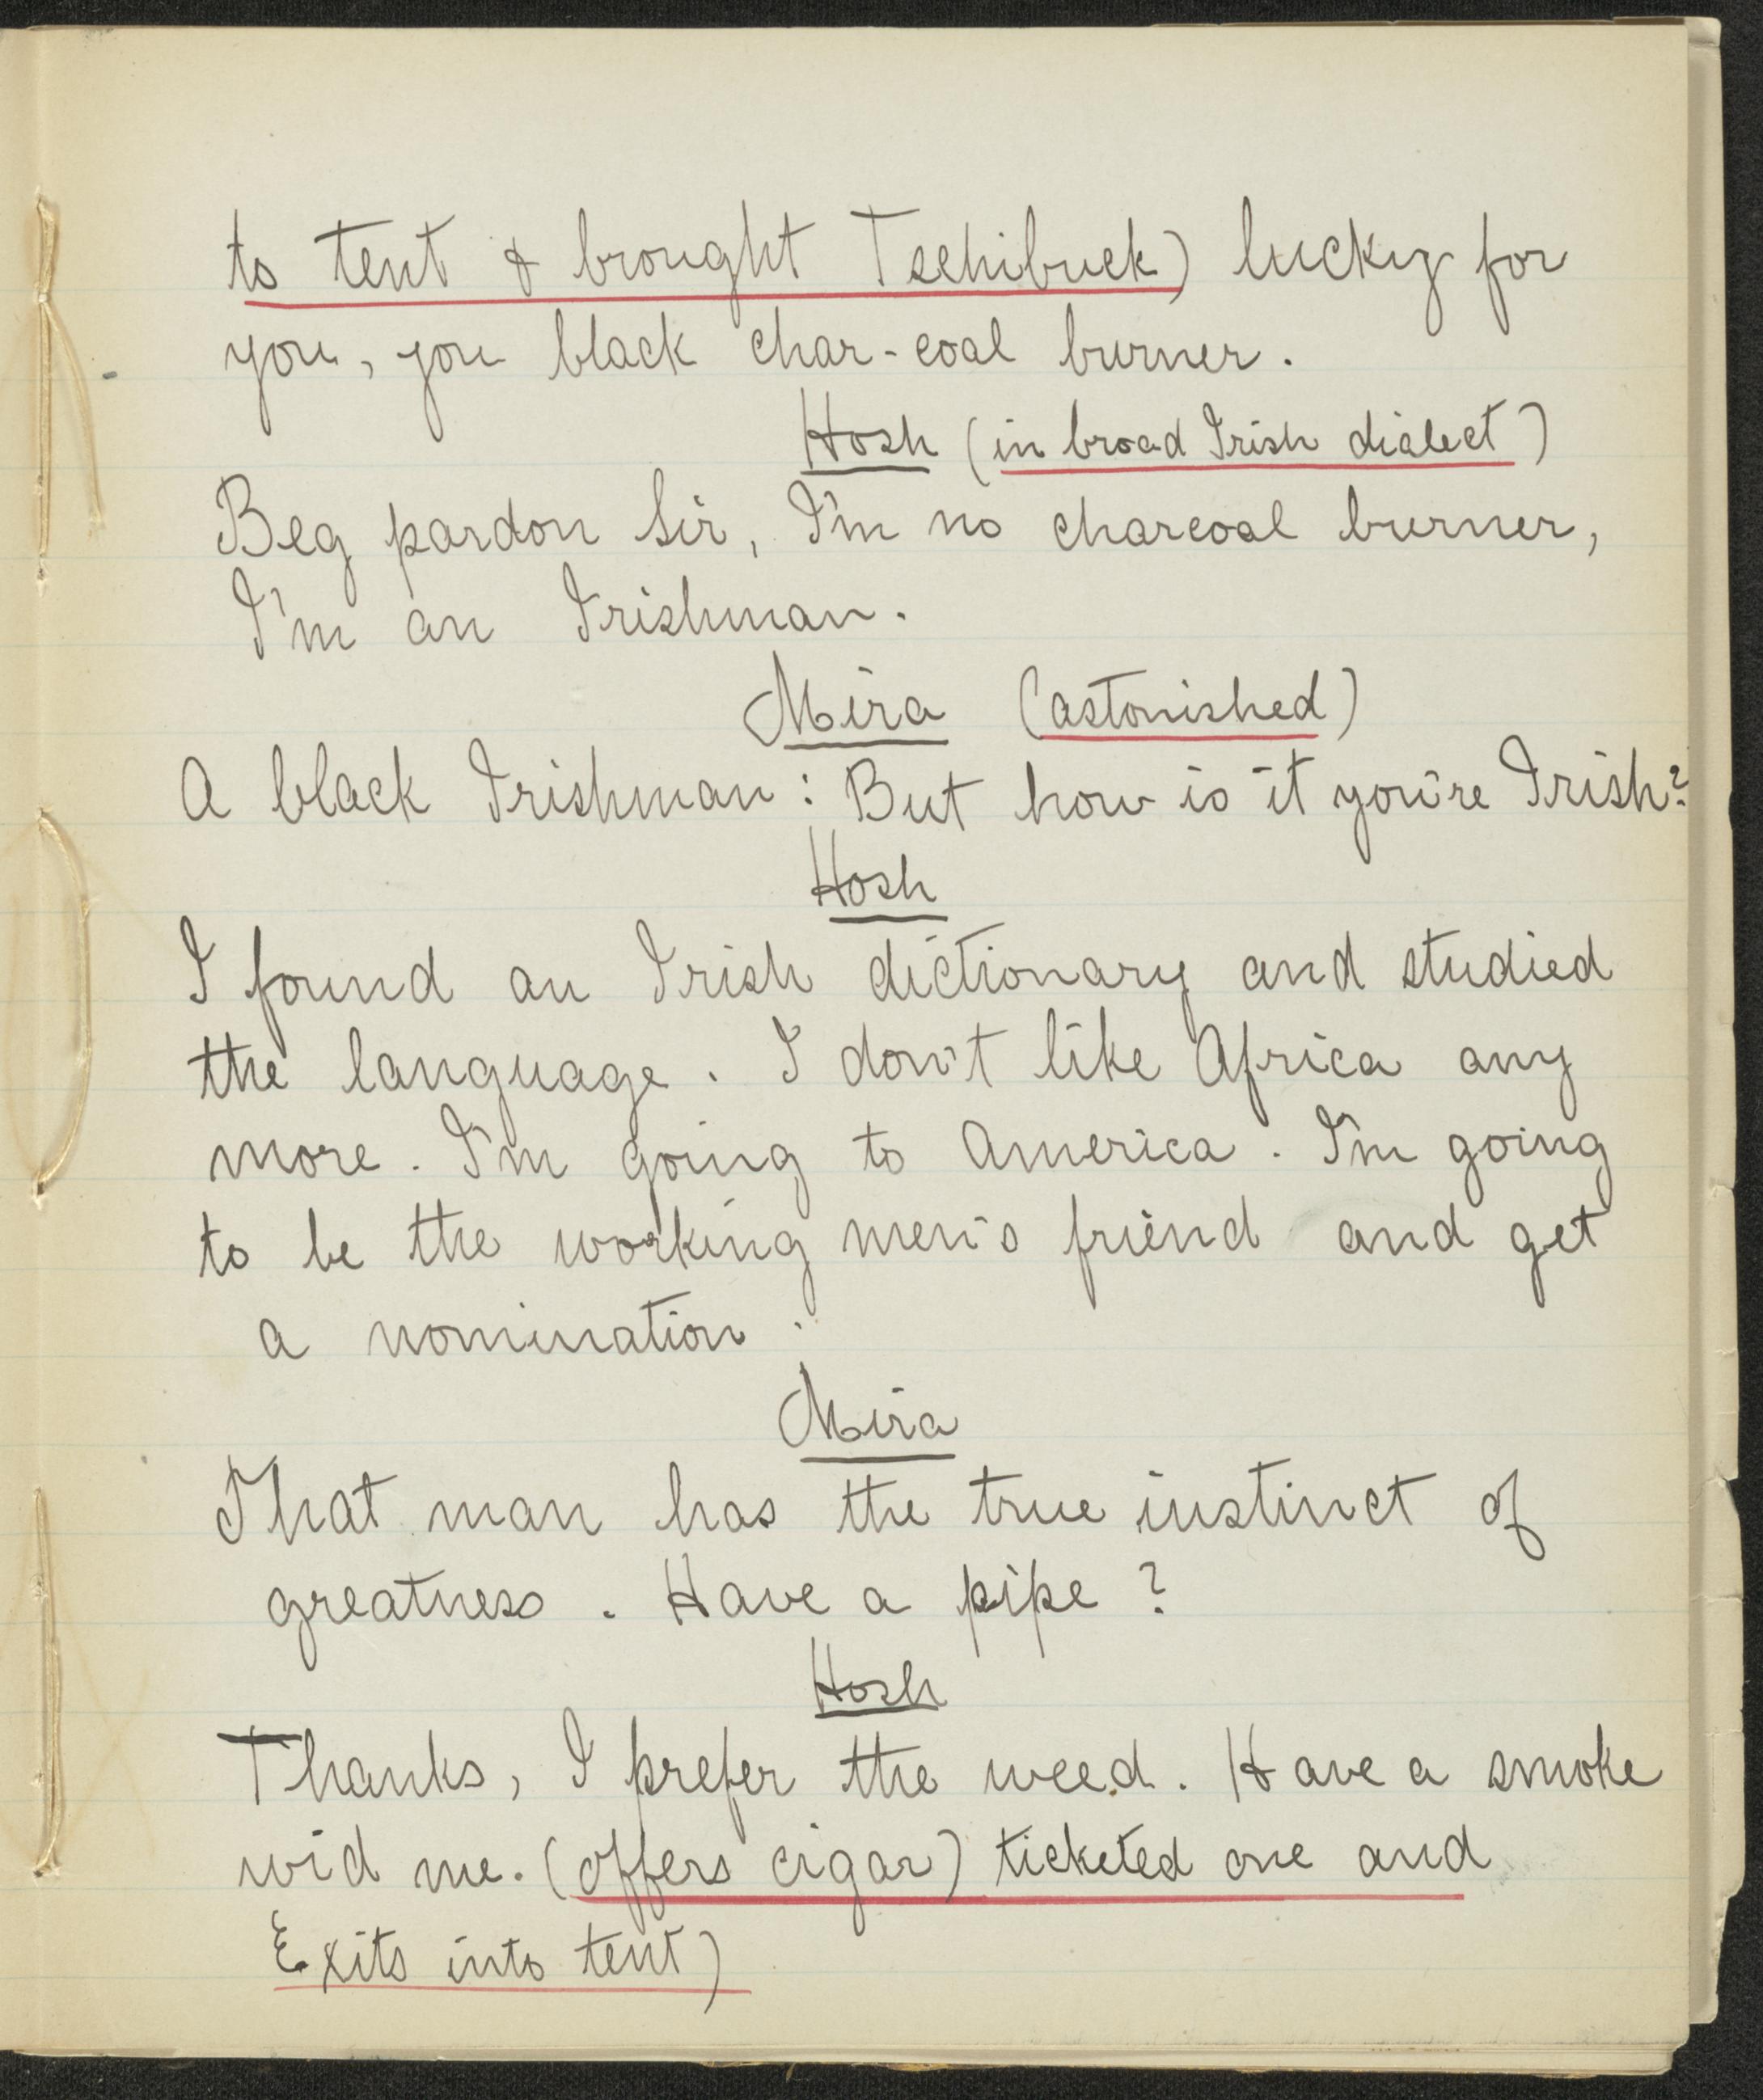 to tent & brought Tschibuck) lucky for
you, you black char-coal burner.
Hosh (in broad Irish dialect)
Beg pardon Sir, I'm no charcoal burner,
I'm an Irishman.
Mira (astonished)
A black Irishman: But how is it you're Irish?
Hosh
I found an Irish dictionary and studied
the language. I don't like Africa any
more. I'm going to America. I'm going
to be the working men's friend and get
a nomination.
Mira
That man has the true instinct of
greatness. Have a pipe?
Hosh
Thanks, I prefer the weed. Have a smoke
wid me. (offers cigar) ticketed one and
Exits into tent)